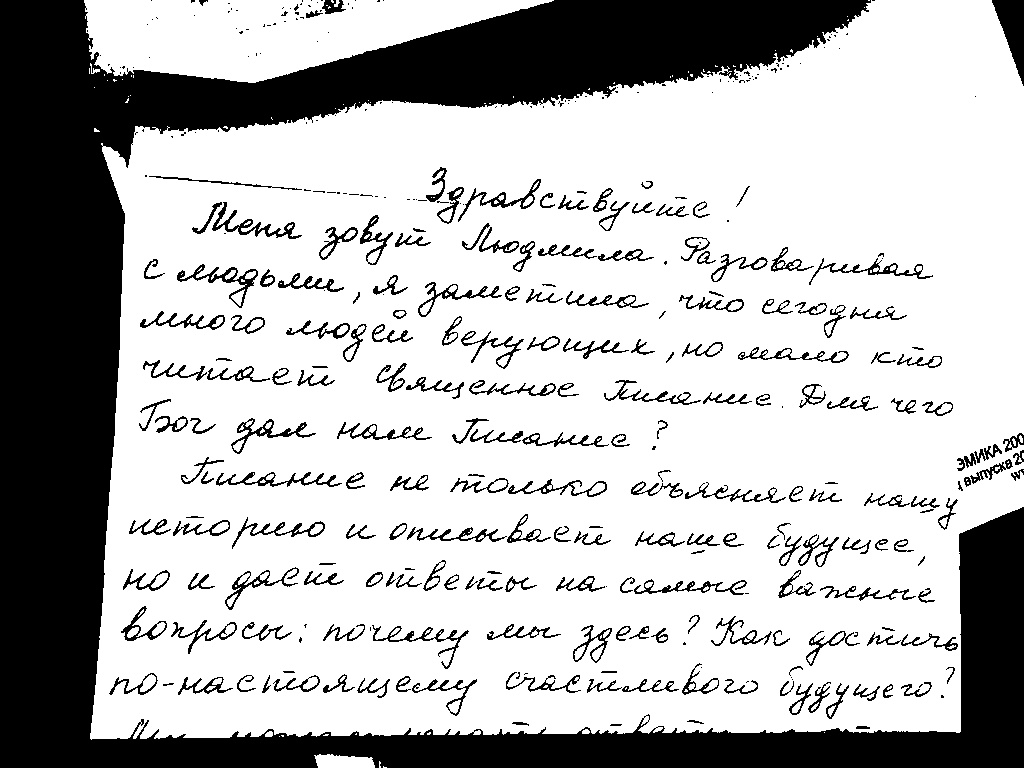 Здравствуйте!
Меня зовут Людмила. Разговаривая
с людьми, я заметила, что сегодня
много людей верующих, но мало кто
читает Священное Писание. Для чего
Бог дал нам Писание?
Писание не только объясняет нашу
историю и описывает наше будущее,
но и даёт ответы на самые важные
вопросы: почему мы здесь? Как достичь
по-настоящему счастливого будущего?
ЭМИКА 200
выпуска 20